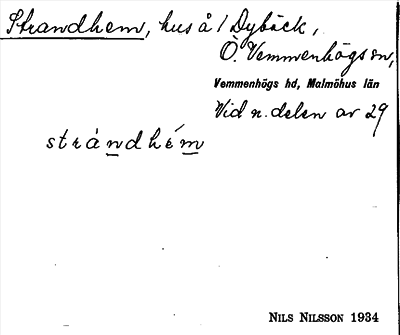 Strandhem, hus å 1 Dybäck,
Ö. Vemmenhögs sn,
Vemmenhögs hd, Malmöhus län
Vid n. delen av 29
strándhém
NILS NILSSON 1934